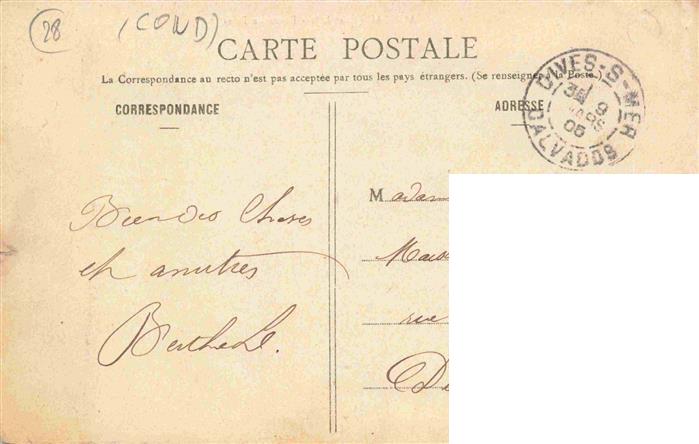 28
(COND)
CARTE POSTALE
La Correspondance au recto n'est pas acceptée par tous les pays étrangers. (Se renseigner à la Poste.)
CORRESPONDANCE
ADRESSE
DIVES-S-MER
9
MARS
05
CALVADOS
Bien des choses
et amitiés
Berthe L.
Madam
rue
De